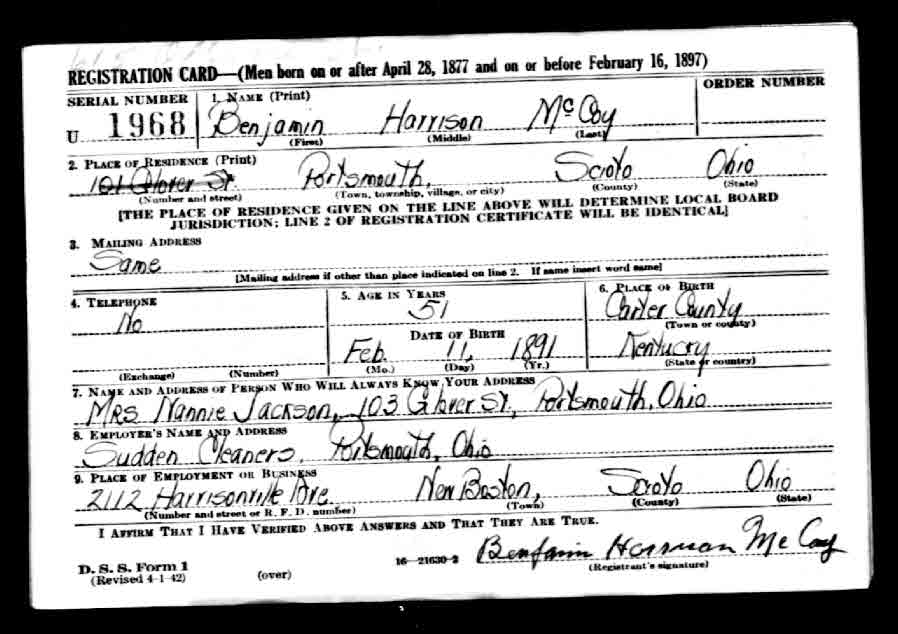 REGISTRATION CARD—(Men born on or after April 28, 1877 and on or before February 16, 1897)
SERIAL NUMBER 1. NAME (Print) ORDER NUMBER
U 1968 Benjamin Harrison McCoy
(First) (Middle) (Last)
2. PLACE OF RESIDENCE (Print)
101 Glover St. Portsmouth, Scioto Ohio
(Number and street) (Town, township, village, or city) (County) (State)
[THE PLACE OF RESIDENCE GIVEN ON THE LINE ABOVE WILL DETERMINE LOCAL BOARD
JURISDICTION; LINE 2 OF REGISTRATION CERTIFICATE WILL BE IDENTICAL]
3. MAILING ADDRESS
Same
[Mailing address if other than place indicated on line 2. If same insert word same]
4. TELEPHONE 5. AGE IN YEARS 6. PLACE OF BIRTH
No 51 Carter County
(Town or county)
DATE OF BIRTH
Feb. 11, 1891 Kentucky
(Exchange) (Number) (Mo.) (Day) (Yr.) (State or country)
7. NAME AND ADDRESS OF PERSON WHO WILL ALWAYS KNOW YOUR ADDRESS
Mrs Nannie Jackson, 103 Glover St., Portsmouth, Ohio
8. EMPLOYER'S NAME AND ADDRESS
Sudden Cleaners, Portsmouth, Ohio
9. PLACE OF EMPLOYMENT OR BUSINESS
2112 Harrisonville Ave. New Boston, Scioto Ohio
(Number and street or R. F. D. number) (Town) (County) (State)
I AFFIRM THAT I HAVE VERIFIED ABOVE ANSWERS AND THAT THEY ARE TRUE.
Benjamin Harrison McCoy
D. S. S. Form 1 16—21630-2 (Registrant's signature)
(Revised 4-1-42) (over)